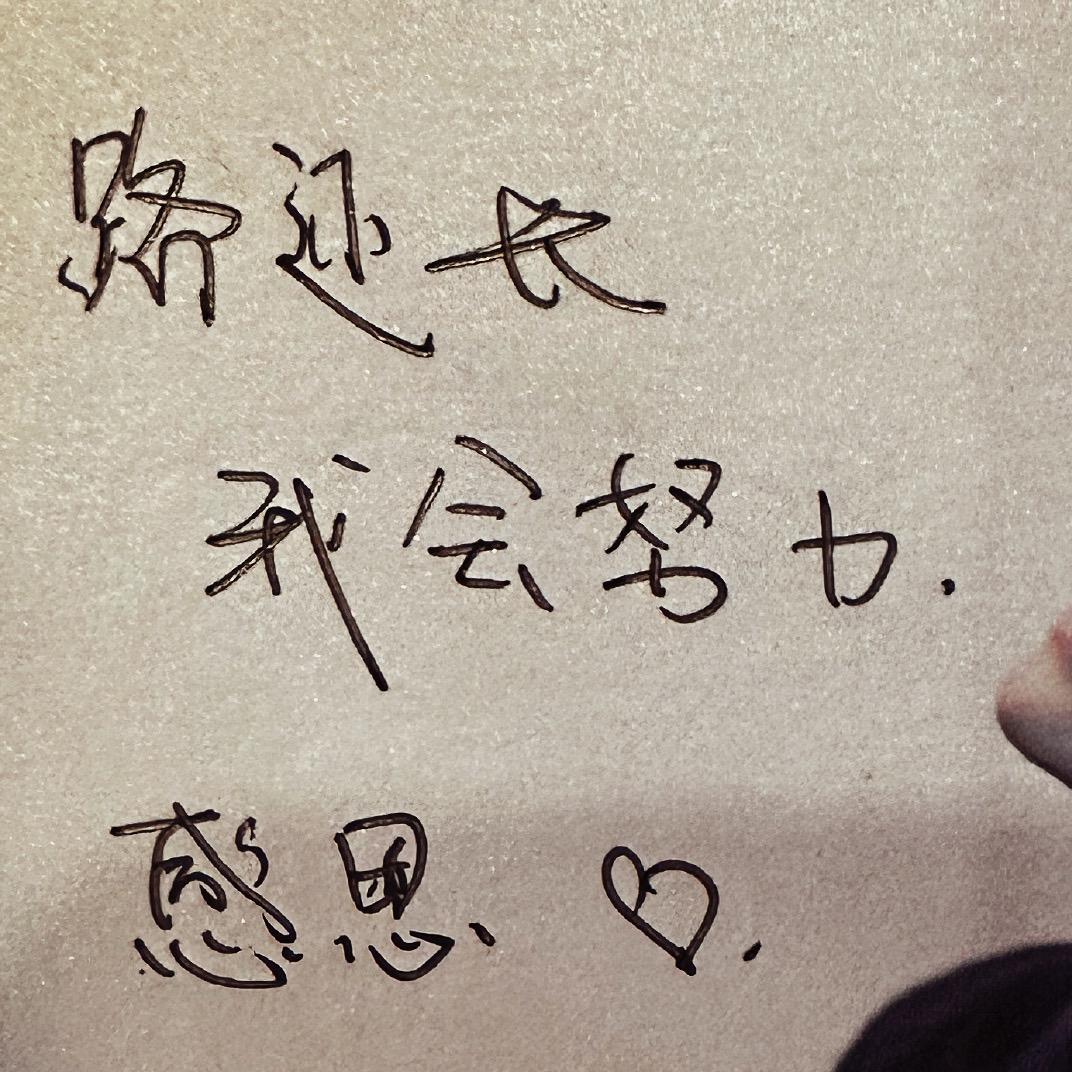 路还长
我会努力.
感恩、♡.